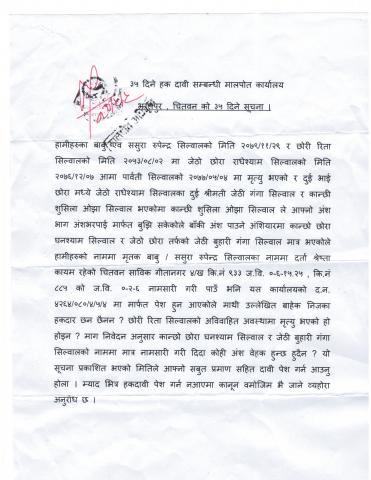 ३५ दिने हक दावी सम्बन्धी मालपोत कार्यालय
भरतपुर , चितवन को ३५ दिने सूचना ।
हामीहरुका बाबु एवं ससुरा रुपेन्द्र सिल्वालको मिति २०७९/११/२९ र छोरी रिता
सिल्वालको मिति २०५३/०८/०२ मा जेठो छोरा राधेश्याम सिल्वालको मिति
२०७६/१२/०७ आमा पार्वती सिल्वालको २०७७/०५/०४ मा मृत्यु भएको र दुई भाई
छोरा मध्ये जेठो राधेश्याम सिल्वालका दुई श्रीमती जेठी गंगा सिल्वाल र कान्छी
शुसिला ओझा सिल्वाल भएकोमा कान्छी शुसिला ओझा सिल्वाल ले आफ्नो अंश
भाग अंशभरपाई मार्फत बुझि सकेकोले बाँकी अंश पाउने अंशियारमा कान्छो छोरा
घनश्याम सिल्वाल र जेठो छोरा तर्फको जेठी बुहारी गंगा सिल्वाल मात्र भएकोले
हामीहरुको नाममा मृतक बाबु / ससुरा रुपेन्द्र सिल्वालका नाममा दर्ता श्रेष्ता
कायम रहेको चितवन साविक गीतानगर ४/ख कि.नं ९३३ ज.वि. ०-६-१५.२५ , कि.नं
८८५ को ज.वि. ०-२-६ नामसारी गरी पाउँ भनि यस कार्यालयको द.न.
४२६४/०८०/४/५/४ मा मार्फत पेश हुन आएकोले माथी उल्लेखित बाहेक निजका
हकदार छन छैनन ? छोरी रिता सिल्वालको अविवाहित अवस्थामा मृत्यु भएको हो
होइन ? माग निवेदन अनुसार कान्छो छोरा घनश्याम सिल्वाल र जेठी बुहारी गंगा
सिल्वालको नाममा मात्र नामसारी गरी दिदा कोही अंश वेहक हुन्छ हुदैन ? यो
सूचना प्रकाशित भएको मितिले आफ्नो सबुत प्रमाण सहित दावी पेश गर्न आउनु
होला । म्याद भित्र हकदावी पेश गर्न नआएमा कानून वमोजिम भै जाने व्यहोरा
अनुरोध छ ।